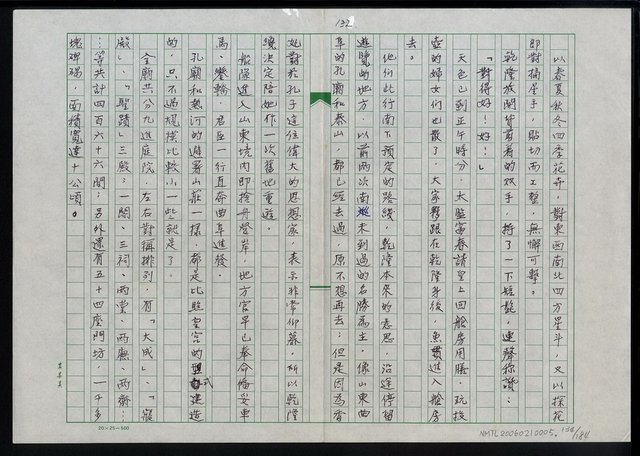 132
以春夏秋冬四季花卉，對東西南北四方星斗，又以探花
即對摘星手，貼切而工整，無懈可擊。
乾隆放開背剪着的双手，捋了一下短髭，連聲称讚：
「對得好！好！」
天色已到正午時分，太監富春請皇上回船房用膳，玩投
壺的婦女们也散了，大家夥跟在乾隆身後，魚貫進入船房
去。
他们此行南下預定的路綫，乾隆本來的意思，沿途停留
遊覽的地方，以前两次南巡未到過的名勝為主，像山東曲
阜的孔廟和泰山，都已經去過，原不想再去；但是因為香
妃對於孔子這位偉大的思想家，表示非常仰慕，所以乾隆
纔決定陪她作一次舊地重遊。
船隊進入山東境内即捨舟登岸，地方官早已奉命備妥車
馬、鑾輪，君臣一行直奔曲阜進發。
孔廟和熱河的避暑山莊一樣，都是比照皇宮的型式建造
的，只不過規模比較小一些就是了。
全廟共分九進庭院，左右對稱排列，有「大成」、「寢
殿」、「聖蹟」三殿；一閣、三祠、两堂、两廡、两齋…
…等共計四百六十六間；另外還有五十四座門坊，一千多
塊碑碣，面積寬達十公頃。
20×25=500
NMTL20060210005. 134/184